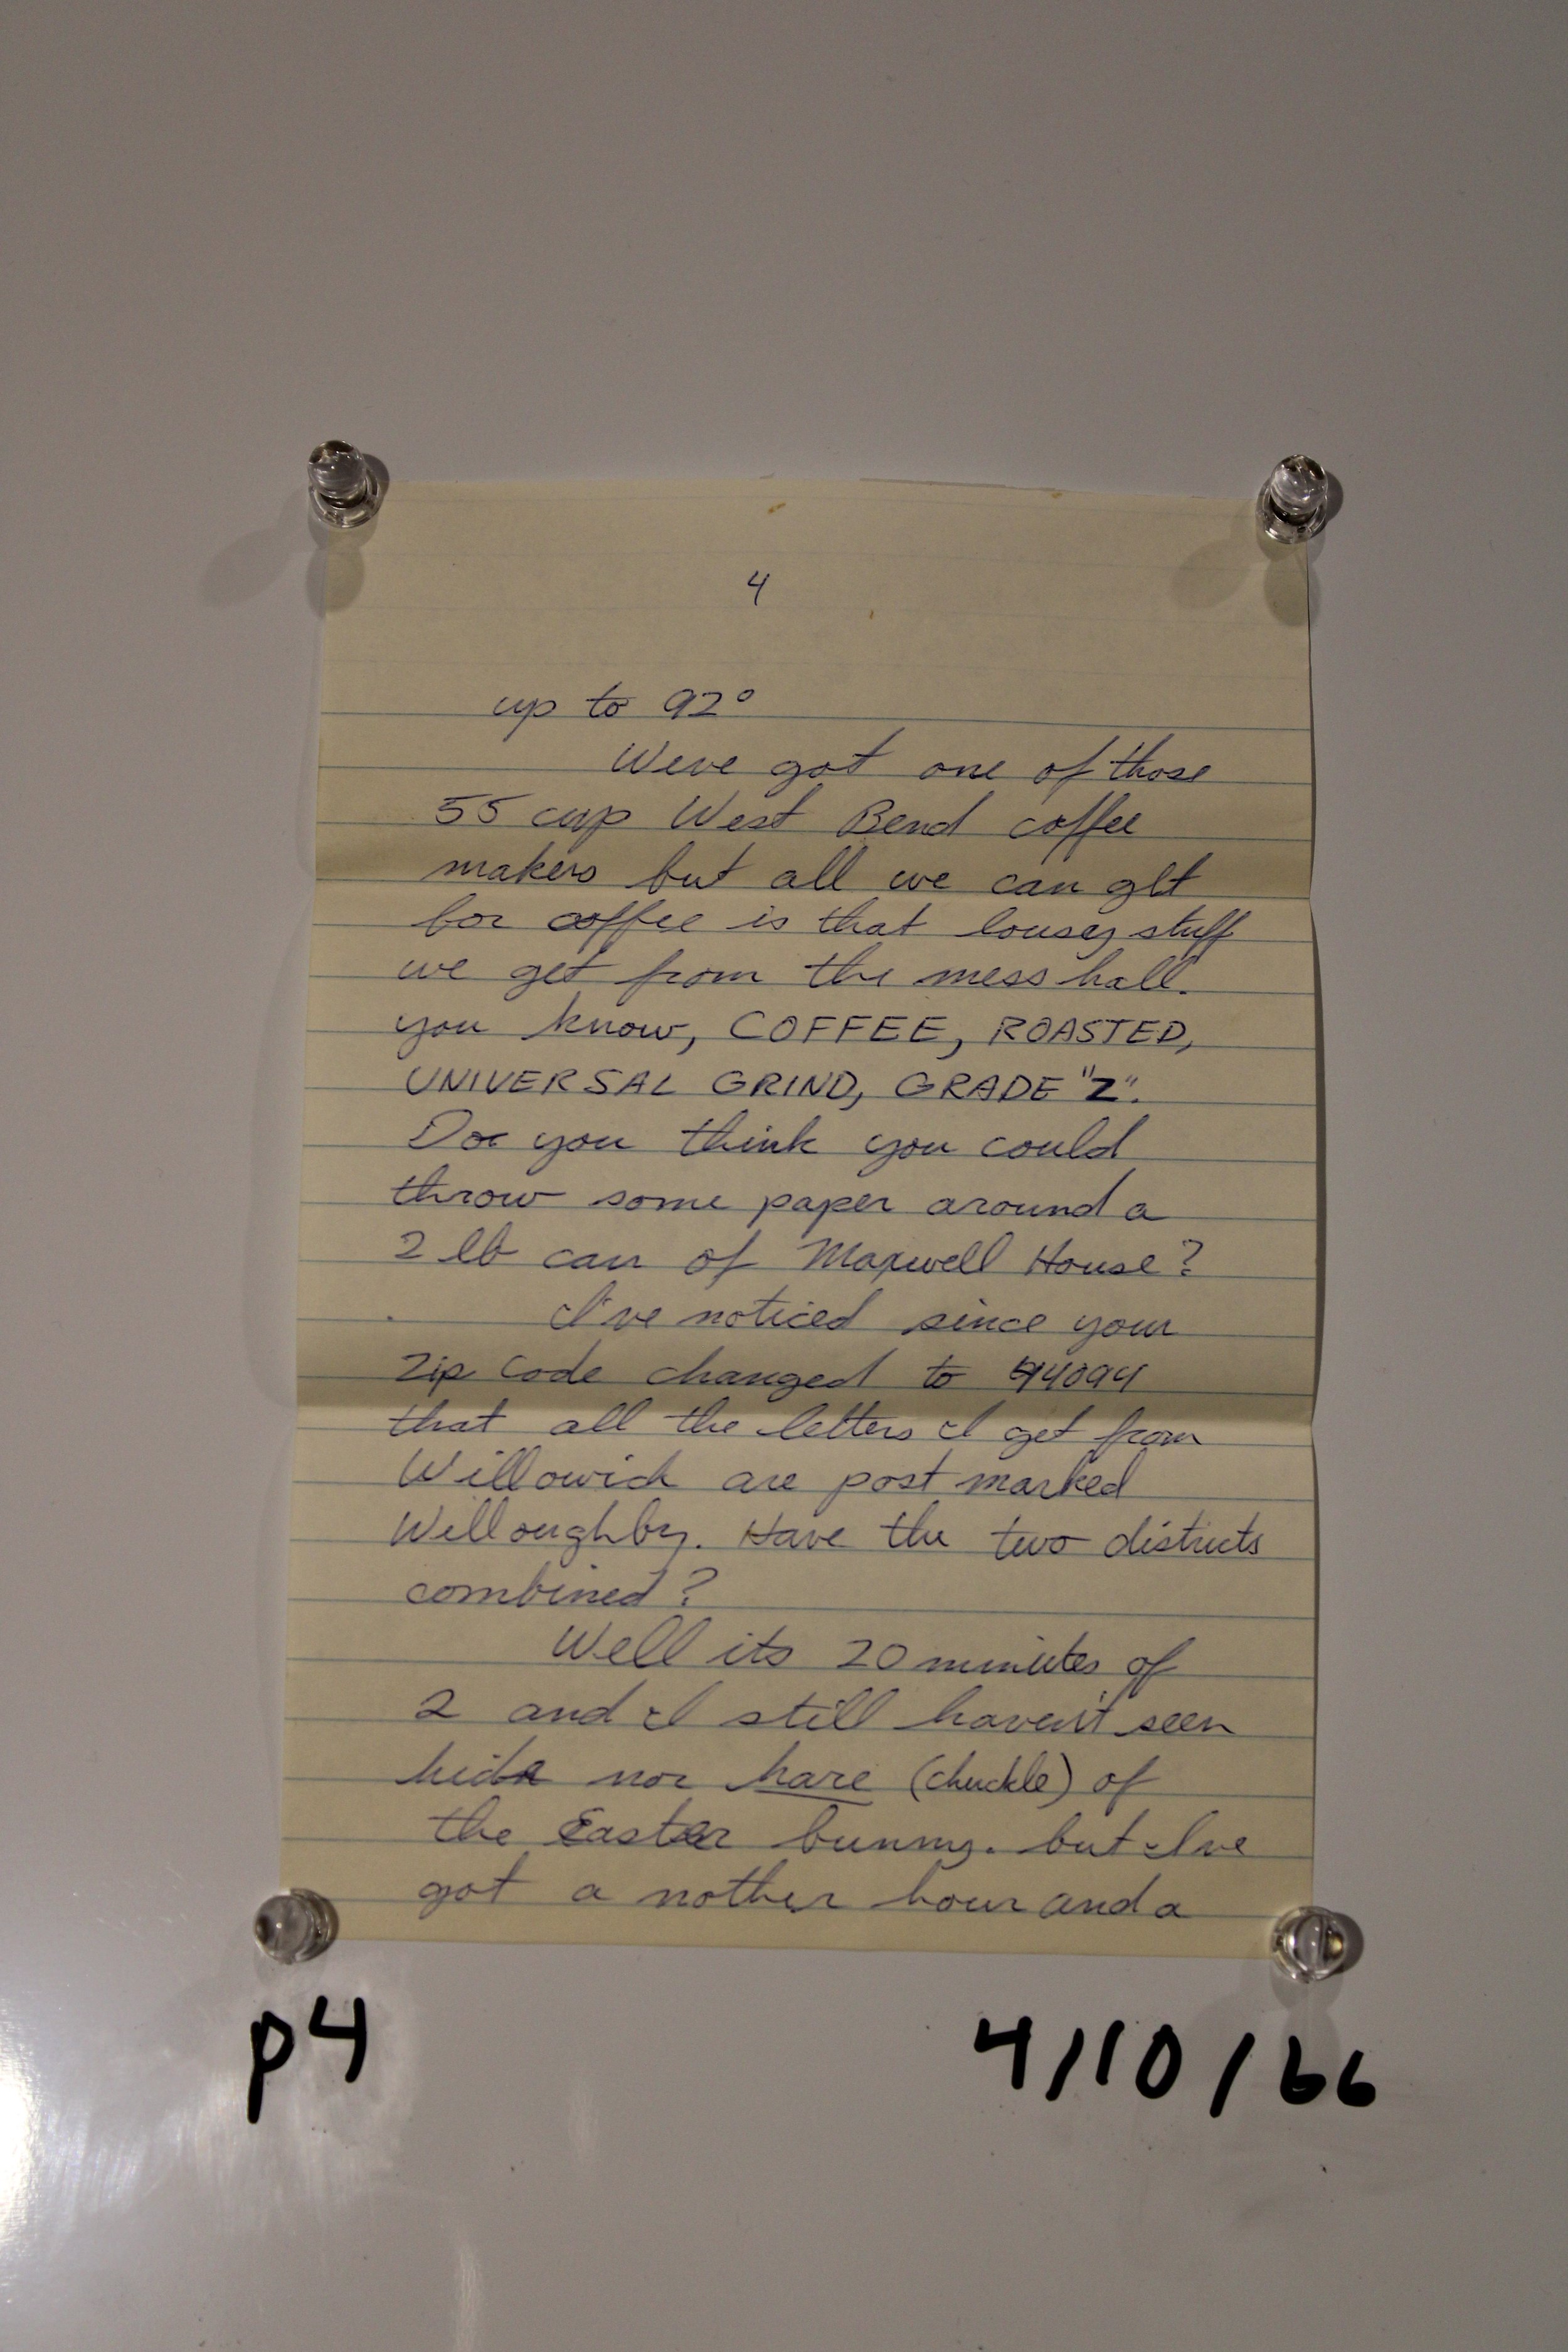 4
up to 92°
Weve got one of those
55 cup West Bend coffee
makers but all we can get
for coffee is that lousey stuff
we get from the mess hall.
you know, COFFEE, ROASTED,
UNIVERSAL GRIND, GRADE "Z".
Do you think you could
throw some paper around a
2 lb can of Maxwell House?
I've noticed since your
Zip Code changed to 44094
that all the letters I get from
Willowick are post marked
Willoughby. Have the two districts
combined?
Well its 20 minutes of
2 and I still haven't seen
hide nor hare (chuckle) of
the Easter bunny. but I've
got a nother hour and a
p4
4/10/66